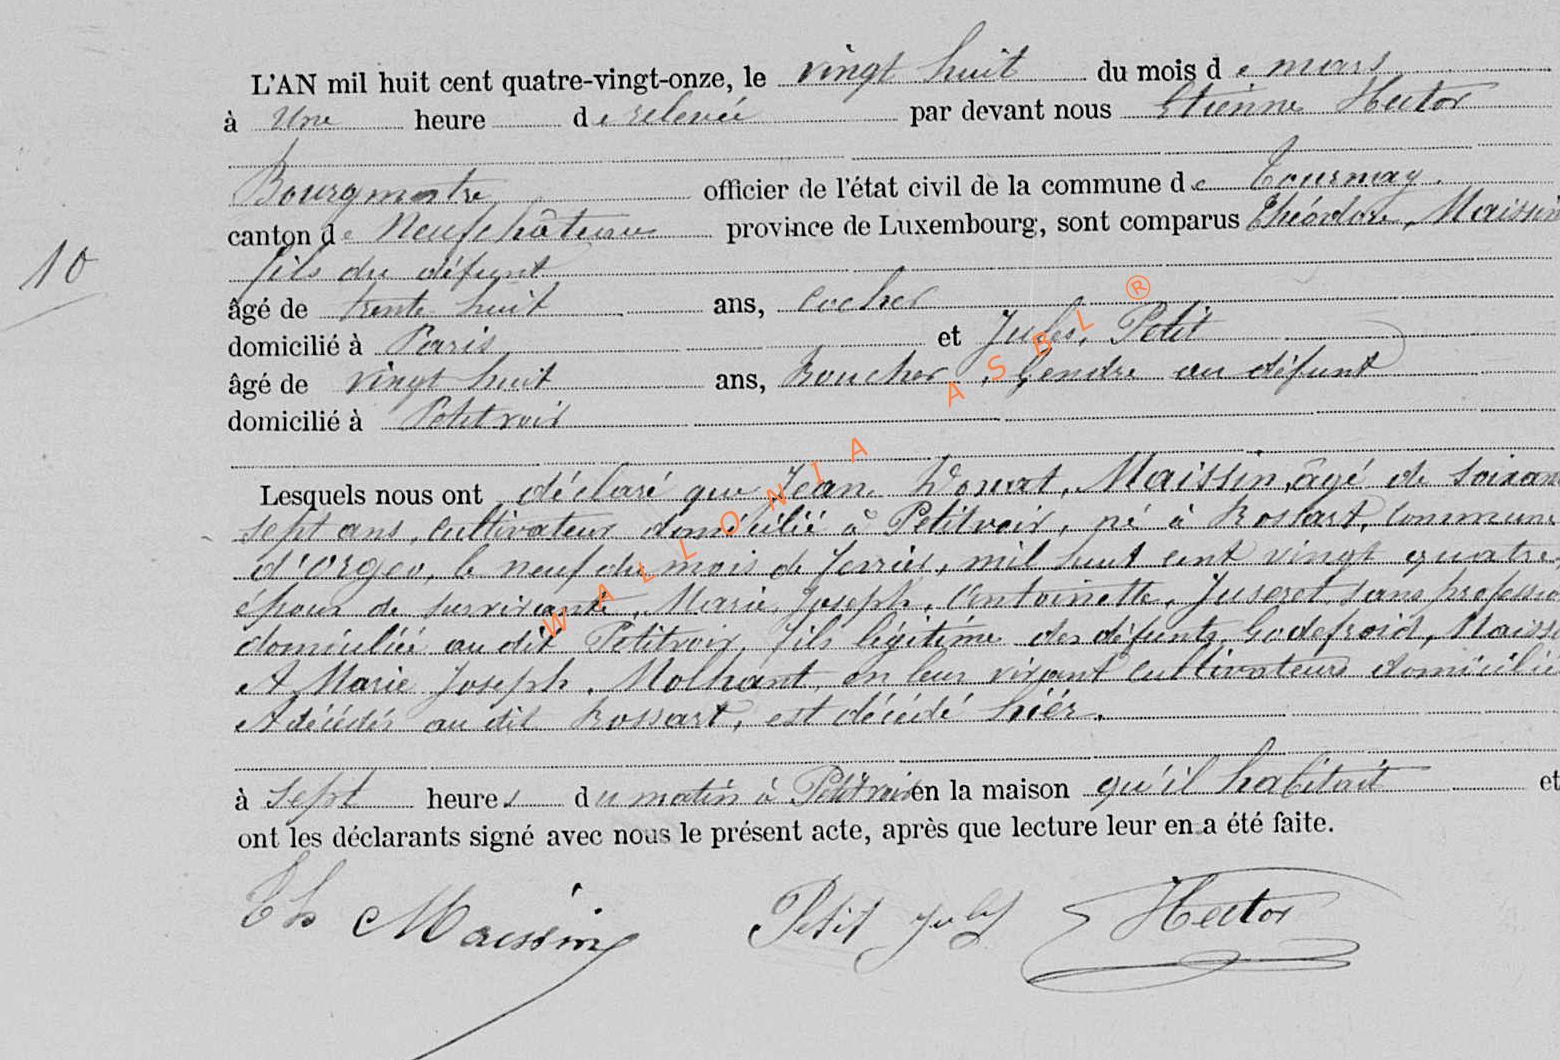 L'AN mil huit cent quatre-vingt-onze, le vingt huit du mois de mars
à Une heure de relevée par devant nous Etienne Hector
Bourgmestre officier de l'état civil de la commune de Tournay.
canton de Neufchâteau province de Luxembourg, sont comparus Théodore, Maissin
fils du défunt
10
âgé de trente huit ans, cocher
domicilié à Paris et Jules, Petit
âgé de vingt huit ans, Boucher, Gendre au défunt
domicilié à Petitvoir
Lesquels nous ont déclaré que Jean Donat, Maissin, âgé de soixan
sept ans, cultivateur domicilié à Petitvoir, né à Rossart, commune
d'Orgeo, le neuf du mois de février, mil huit cent vingt quatre,
époux de survivante, Marie, Joseph, Antoinette, Juseret, sans professio
domiciliée au dit Petitvoir, fils légitime des défunts, Godefroid, Maissi
et Marie Joseph, Molhant, en leur vivant cultivateurs domicilié
et décédés au dit Rossart, est décédé hier.
à sept heures du matin à Petitvoir en la maison qu'il habitait et
ont les déclarants signé avec nous le présent acte, après que lecture leur en a été faite.
Th Maissin Petit Jules Hector
WALLONIA ASBL ®